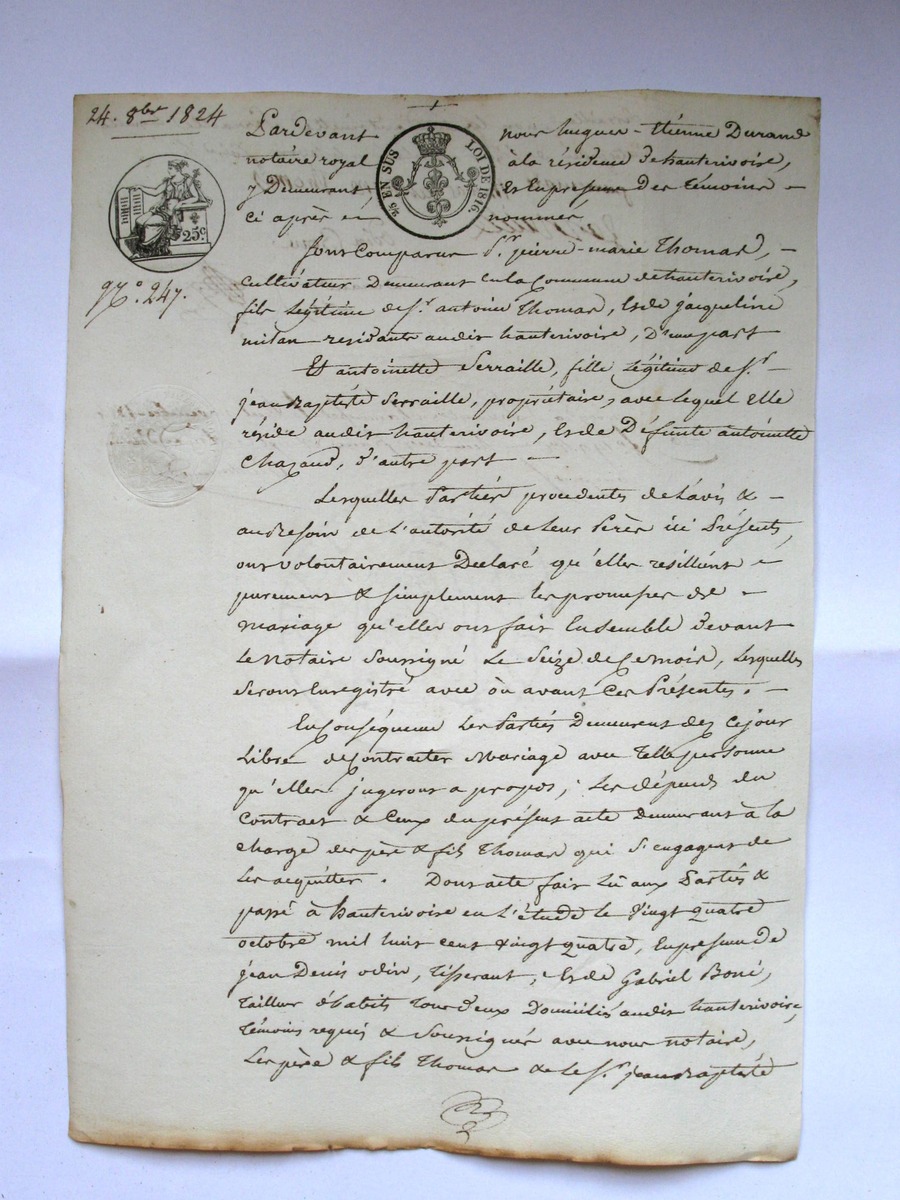 24. 8bre 1824
Pardevant nous hugues-étienne Durand
notaire royal à la résidence d'hauterivoire,
y Demeurant Et En presence des témoins -
ci après nommés
EN SUS LOI DE 1816.
25c.
N.o 247.
Sont Comparus Sr. pierre-marie Thomas, -
cultivateur Demeurant En la Commune d'hauterivoire,
fils Légitime de Sr. antoine Thomas, Et de jacqueline
milan residants audit hauterivoire, D'une part
Et antoinette Serraille, fille Légitime de Sr. -
jean Baptiste Serraille, propriétaire, avec lequel Elle
réside audit hauterivoire, Et de Défunte antoinette
Chazaud, d'autre part -
Lesquelles Parties procedentes de L'avis & -
au Besoin de L'autorité de Leur Pères ici Présents,
ont volontairement Declaré qu'elles resilient
purement & simplement les promesses de -
mariage qu'elles ont fait Ensemble devant
Le Notaire Soussigné Le Seize de Ce mois, Lesquelles
Seront Enregistré avec où avant Ces Présentes. -
En Conséquence Les Parties Demeurent dès Ce jour
Libre de Contracter Mariage avec Telle personne
qu'elles jugeront a propos; Les dépends du
Contract & Ceux du présent acte demeurant à la
charge des père & fils Thomas qui S'engagent de
Les acquitter. Dont acte fait Lû aux Parties &
passé à hauterivoire en L'étude le Vingt quatre
octobre mil huit cent Vingt quatre, En presence de
jean Denis odin, Tisserant, Et de Gabriel Boni,
Tailleur d'habits Tous deux Domiciliés audit hauterivoire,
Témoins requis & Soussignés avec nous notaire,
Les père & fils Thomas & le Sr. jean Baptiste